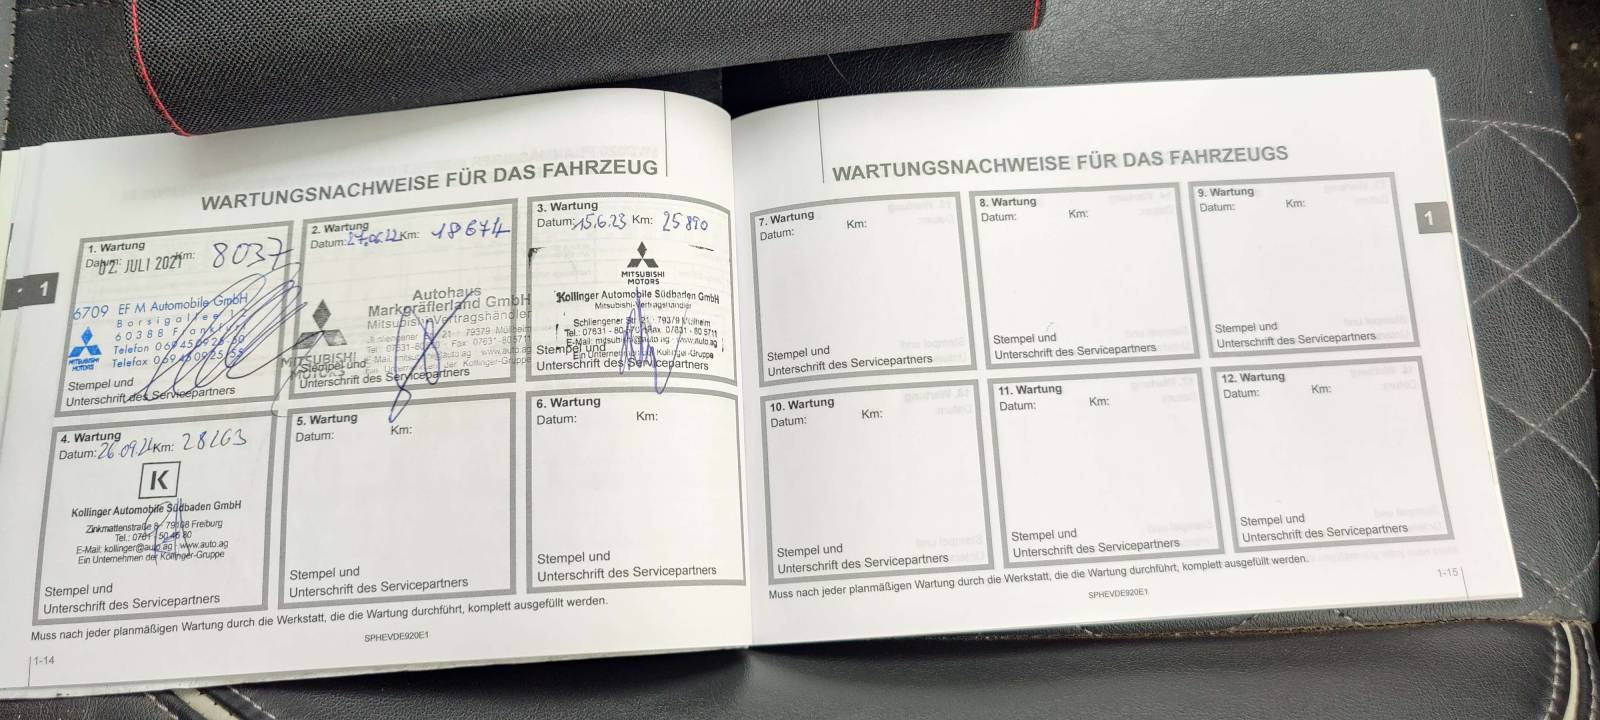 WARTUNGSNACHWEISE FÜR DAS FAHRZEUG
1
1. Wartung
Datum: Km:
02. JULI 2021 8037
6709 EF M Automobile GmbH
Borsigallee 12
60388 Frankfurt
Telefon 069 450925-50
Telefax 069 450925-55
MITSUBISHI
MOTORS
Stempel und
Unterschrift des Servicepartners
2. Wartung
Datum: 27.06.22 Km: 18674
Autohaus
Markgräflerland GmbH
Mitsubishi Vertragshändler
21 · 79379 Müllheim
MITSUBISHI
MOTORS
Stempel und
Unterschrift des Servicepartners
3. Wartung
Datum: 15.6.23 Km: 25890
MITSUBISHI
MOTORS
Kollinger Automobile Südbaden GmbH
Mitsubishi-Vertragshändler
Schliengener Str. 21 · 79379 Müllheim
Tel.: 07631 - 80 570 Fax. 07631 - 80 5711
E-Mail: mitsubishi@auto.ag · www.auto.ag
Ein Unternehmen der Kollinger-Gruppe
Stempel und
Unterschrift des Servicepartners
4. Wartung
Datum: 26.09.24 Km: 28263
K
Kollinger Automobile Südbaden GmbH
Zinkmattenstraße 8 · 79108 Freiburg
Tel.: 0761 50 46 80
E-Mail: kollinger@auto.ag · www.auto.ag
Ein Unternehmen der Kollinger-Gruppe
Stempel und
Unterschrift des Servicepartners
5. Wartung
Datum: Km:
Stempel und
Unterschrift des Servicepartners
6. Wartung
Datum: Km:
Stempel und
Unterschrift des Servicepartners
Muss nach jeder planmäßigen Wartung durch die Werkstatt, die die Wartung durchführt, komplett ausgefüllt werden.
SPHEVDE920E1
1-14
WARTUNGSNACHWEISE FÜR DAS FAHRZEUGS
1
7. Wartung
Datum: Km:
Stempel und
Unterschrift des Servicepartners
8. Wartung
Datum: Km:
Stempel und
Unterschrift des Servicepartners
9. Wartung
Datum: Km:
Stempel und
Unterschrift des Servicepartners
10. Wartung
Datum: Km:
Stempel und
Unterschrift des Servicepartners
11. Wartung
Datum: Km:
Stempel und
Unterschrift des Servicepartners
12. Wartung
Datum: Km:
Stempel und
Unterschrift des Servicepartners
Muss nach jeder planmäßigen Wartung durch die Werkstatt, die die Wartung durchführt, komplett ausgefüllt werden.
SPHEVDE920E1
1-15